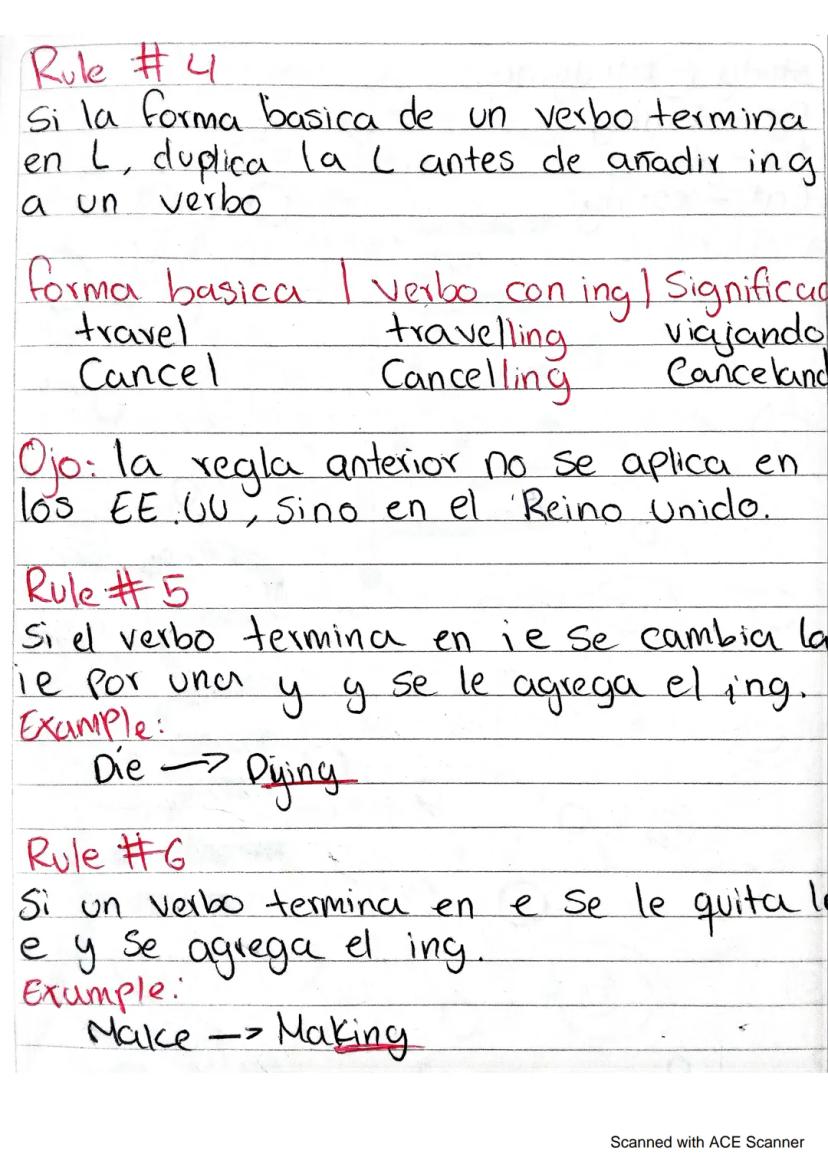 Rule # 4
Si la forma basica de un verbo termina
en L, duplica la L antes de añadir ing
a un verbo
forma basica | verbo con ing | Significad
travel travelling viajando
Cancel Cancelling Canceland
Ojo: la regla anterior no se aplica en
los EE.UU, Sino en el Reino Unido.
Rule # 5
Si el verbo termina en ie Se cambia la
ie por una y y se le agrega el ing.
Example:
Die → Dying
Rule #6
Si un verbo termina en e Se le quita l
e y Se agrega el ing.
Example:
Make → Making
Scanned with ACE Scanner